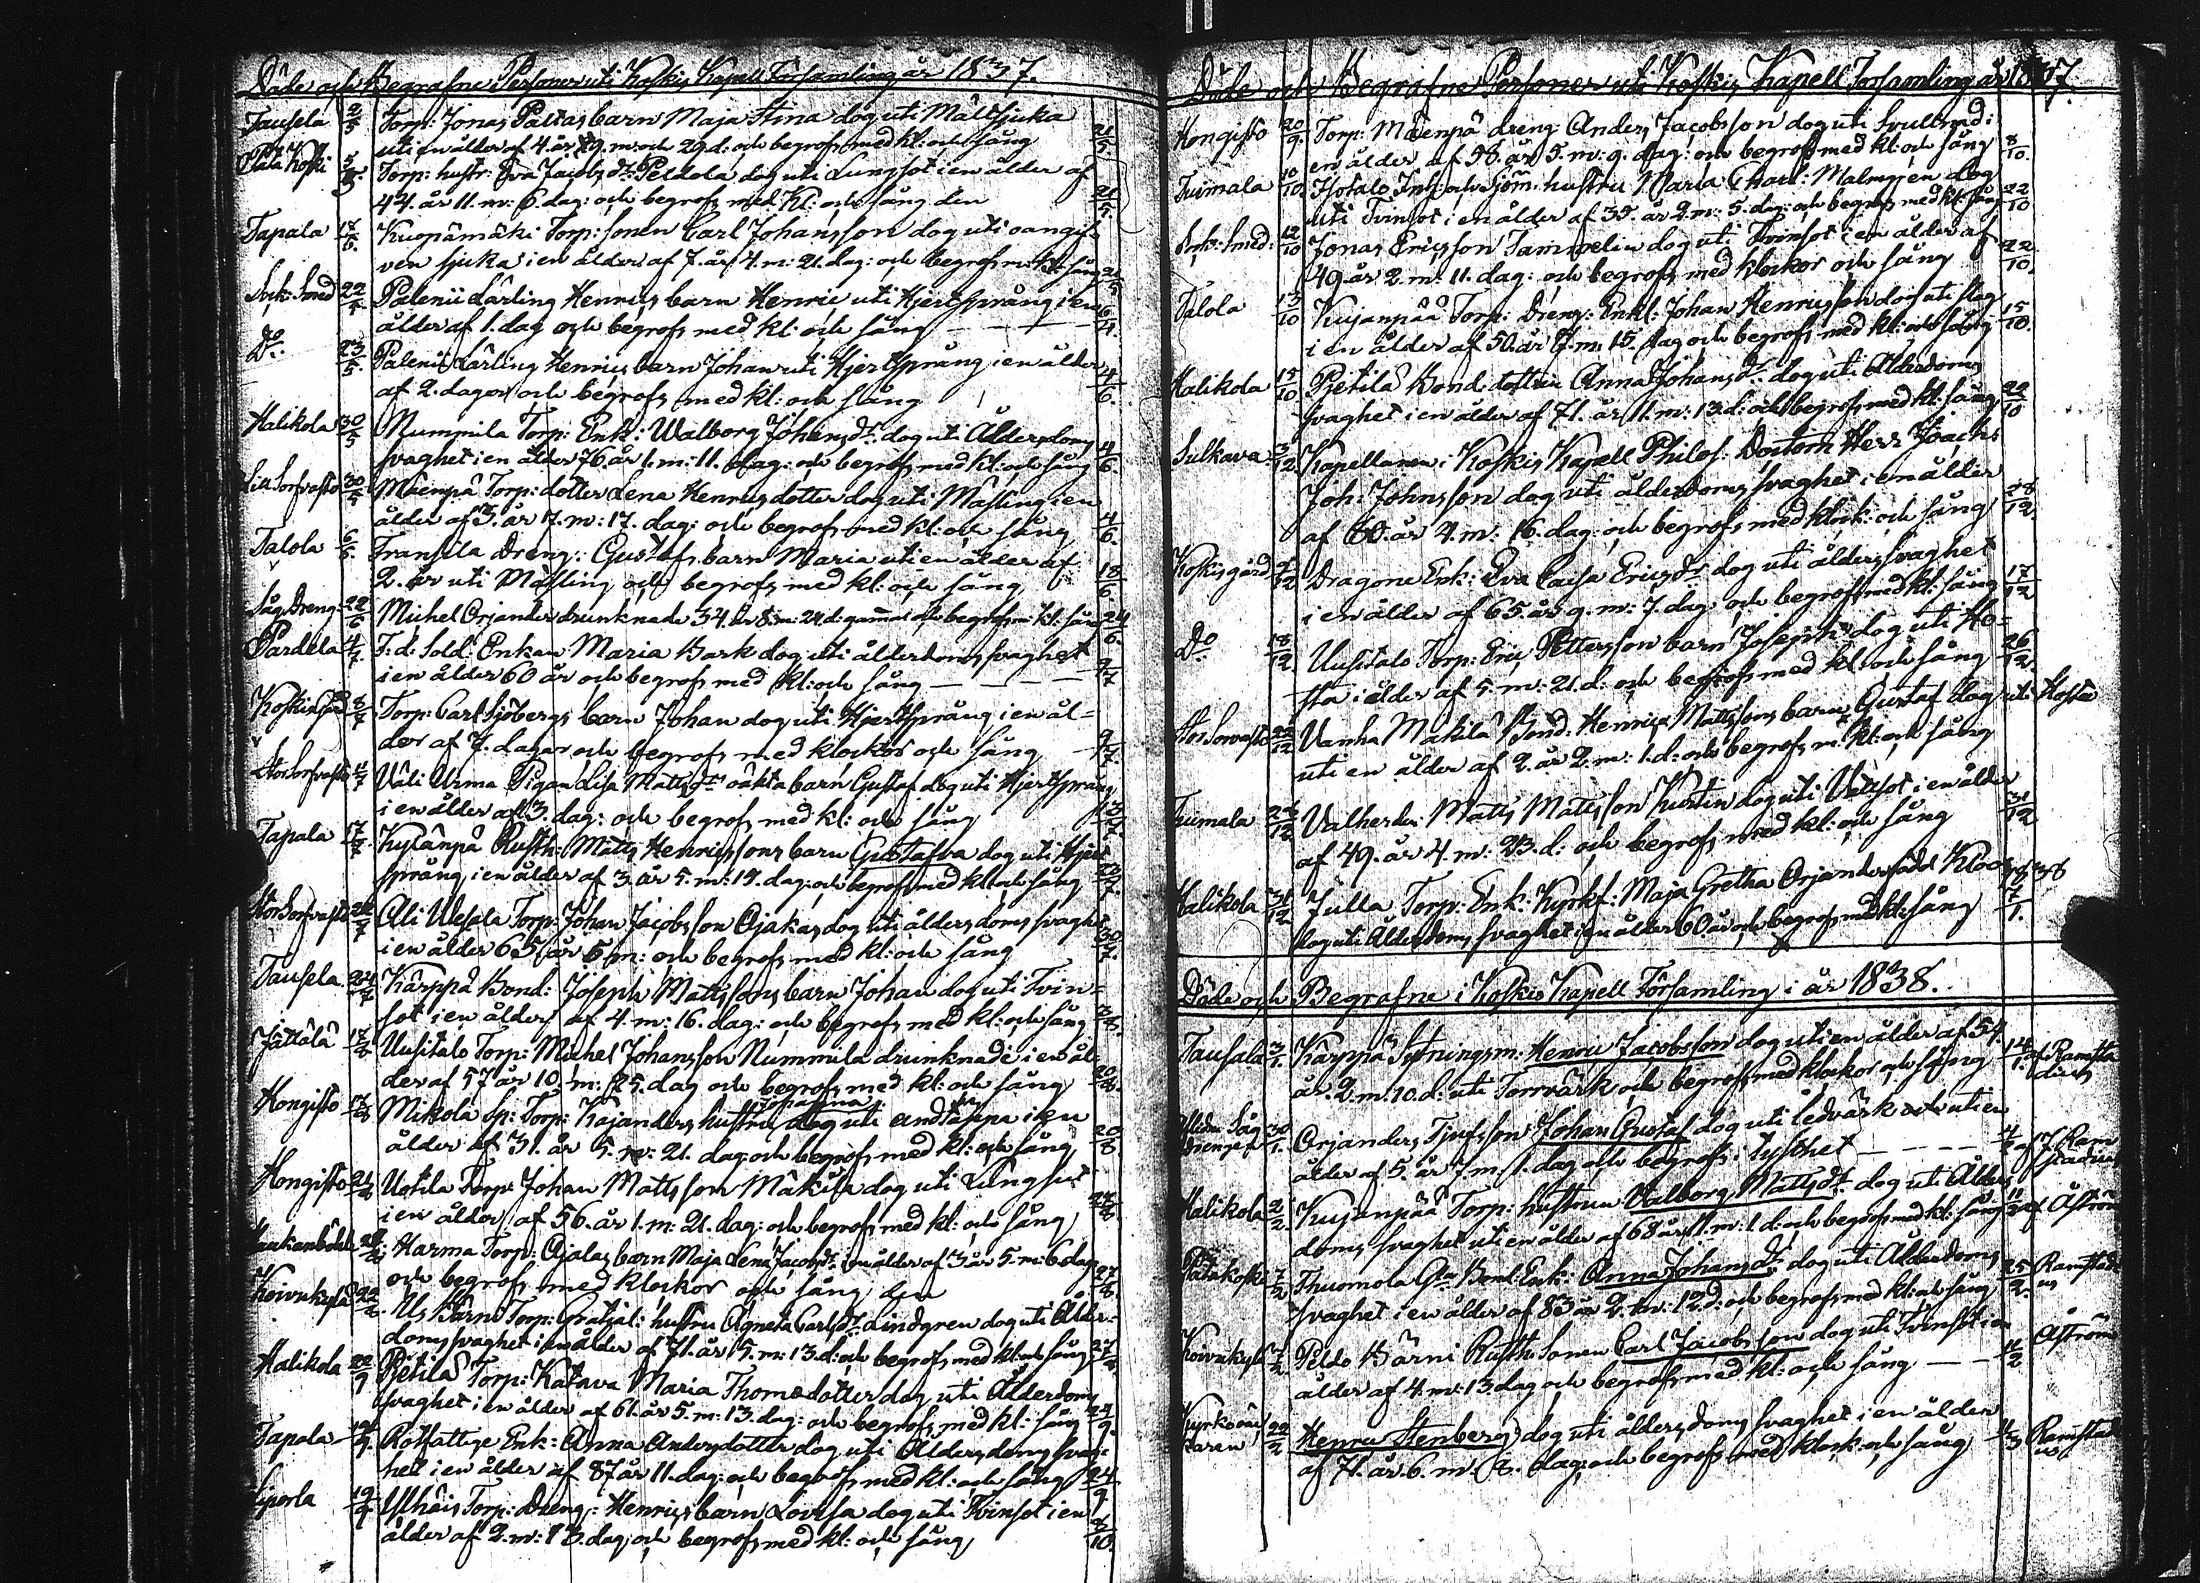 Döde och Begrafne Personer uti Koskis Kapell Församling år 1837.
Tausela 2/5 Torp: Jonas barn Maja Stina dog uti Mältsjuka
uti en ålder af 4. år 9. m: och 29. d: och begrofs med kl: och sång 21/5.
Koski 5/5 Torp: hustr: Eva Jacobs dr: Peldola dog uti Lungsot i en ålder af
44. år 11. m: 6. dag: och begrofs med Kl: och sång den 21/5.
Tapala 17/5. Kuopämäki Torp: sonen Carl Johansson dog uti oangif-
ven sjuka i en ålder af 7. år 4. m: 21. dag: och begrofs m: kl: sång
Sock: Smed 22/5. Palenii Lärling Henrics barn Henric uti Hjertsprång i en
ålder af 1. dag och begrofs med kl: och sång
Do: 23/5 Palenii Lärling Henrics barn Johan uti Hjertsprång i en ålder
af 2. dagar och begrofs med kl: och sång 4/6.
Halikola 30/5 Nummila Torp: Enk: Walborg Johans dr: dog uti Ålderdoms
svaghet i en ålder 76. år 1. m: 11. dag: och begrofs med kl: och sång 4/6.
30/5. Mäenpä Torp: dotter Lena Henrics dotter dog uti Mäsling i en
ålder af 3. år 7. m: 17. dag: och begrofs med kl: och sång 4/6.
Talola 6/6 Fransila Dreng: Gustafs barn Maria uti en ålder af
2. år uti Mäsling och begrofs med kl: och sång 18/6.
Såg Dreng 22/6 Michel Orjander drunknade 34. år 8. m: 24. d: gammal och begrofs m: kl: sång 24/6.
Pardela 4/7. F. d. Sold: Enkan Maria Bark dog uti ålderdoms svaghet
i en ålder 60 år och begrofs med kl: och sång 9/7
Koskisgård 8/7 Torp: Carl Sjöbergs barn Johan dog uti Hjertsprång i en ål-
der af 7. dagar och begrofs med klockor och sång 9/7.
Stor Sorfvasto Väli Urma Pigan Lisa Matts dr: oäkta barn Gustaf dog uti Hjertsprång
i en ålder af 3. dag: och begrofs med kl: och sång
Tapala 17/7. Kylänpä Rusth: Matts Henricssons barn Gustafva dog uti Hjert
språng i en ålder af 3. år 5. m: 19. dag: och begrofs med kl: och sång
Stor Sorfvasto Ali Uusela Torp: Johan Jacobsson Ajakas dog uti åldersdoms svaghet
i en ålder 65 år 5 m: och begrofs med kl: och sång
Tausela Kärppä Bond: Joseph Mattssons barn Johan dog uti Tvin-
sot i en ålder af 4. m: 16. dag: och begrofs med kl: och sång
Jättälä 17/8 Uusitalo Torp: Michel Johansson Nummila drunknade i en ål-
der af 57 år 10. m: 25. dag och begrofs med kl: och sång 20/8.
Hongisto 17/8 Mikola Sp: Torp: Kajanders hustru Johanna dog uti andtäppa i en
ålder af 31. år 5. m: 21. dag: och begrofs med kl: och sång 20/8
Hongisto Uotila Torp: Johan Mattsson Mäkilä dog uti Lungsot
i en ålder af 56. år 1. m: 21. dag: och begrofs med kl: och sång
Harma Torp: Ojalas barn Maja Lena Jacobs dr: i en ålder af 3 år 5. m: 6 dag:
och begrofs med klockor och sång den 27/8.
Koivukylä Torp: Gratial: hustru Agneta Carls dr: Lindgren dog uti Ålder-
doms svaghet i en ålder af 71. år 5. m: 13. d: och begrofs med kl: och sång
Halikola 22/9 Pjetilä Torp: Katava Maria Thomadotter dog uti Ålderdoms
svaghet i en ålder af 61. år 5. m: 13. dag: och begrofs med kl: sång 24/9.
Tapola 19/9. Rotfattige Enk: Anna Andersdotter dog uti Åldersdoms svag-
het i en ålder af 87 år 11. dag: och begrofs med kl: och sång 24/9
Liporla 19/9 Torp: Dreng: Henrics barn Lovisa dog uti Tvinsot i en
ålder af 2. m: 13. dag: och begrofs med kl: och sång
Döde och Begrafne Personer uti Koskis Kapell Församling år 1837.
Hongisto 20/9. Torp: Mäenpä dreng Anders Jacobsson dog uti Svullnad i
en ålder af 58. år 5. m: 9. dag: och begrofs med kl: och sång 8/10.
Tuimala 10/10 Isotalo Inh: och Sjöm: hustru Maria Charl: Malmgrén dog
uti Tvinsot i en ålder af 35. år 2. m: 5. dag: och begrofs med kl: sång 22/10
Sock: Smed: 12/10 Jonas Ericsson Tammelin dog uti Tvinsot i en ålder af
49. år 2. m: 11. dag: och begrofs med klockor och sång 22/10.
Talola 13/10 Kujanpää Torp: Dreng: Enkl: Johan Henricsson dog uti slag
i en ålder af 50. år 7. m: 15. dag och begrofs med kl: och sång 15/10.
Halikola 15/10 Pjetilä Bond: dottren Anna Johans dr: dog uti Ålderdoms
svaghet i en ålder af 71. år 11. m: 13. d: och begrofs med kl: sång 22/10
Sulkava 3/12 Kapellanen i Koskis Kapell Philos: Doctorn Herr
Joh: Johnsson dog uti ålderdoms svaghet i en ålder
af 60. år 4. m: 16. dag: och begrofs med klock: och sång 28/12.
Koskisgård Dragone Enk: Eva Caisa Erics dr: dog uti ålderssvaghet
i en ålder af 65. år 9. m: 7. dag: och begrofs med kl: sång 17/12
Do 18/12 Uusitalo Torp: Eric Pettersson barn Joseph dog uti Ho-
sta i ålder af 5. m: 21. d: och begrofs med kl: och sång 26/12.
Stor Sorvasto Vanha Mäkilä Bond: Henrics Mattssons barn Gustaf dog uti Hosta
uti en ålder af 2. år 2. m: 1. d: och begrofs m: kl: och sång
Tuimala Matts Mattsson Kustin dog uti Vattsot i en ålder
af 49. år 4. m: 23. d: och begrofs med kl: och sång 31/12
Halikola 31/12 Julla Torp: Enk: Kyrkf: Maja Gretha Orjander född Klock 1838
dog uti Ålderdoms svaghet i en ålder 60. år och begrofs med kl: sång 7/1.
Döde och Begrafne i Koskis Kapell Församling i år 1838.
Tausala 3/1. Kärppä Sytningsm: Henric Jacobsson dog uti en ålder af 54.
år. 2. m. 10. d: uti Torrvärk och begrofs med klockor och sång 14/1. af Ramsta
dius
Såg
30/1. Orjanders Tjufsson Johan Gustaf dog uti ledvärk och uti en
ålder af 5. år 7. m. 1. dag och begrofs i tysthet af Ram
stadius
Halikola 2/2 Kujanpää Torp: hustrun Valborg Matts dr: dog uti Ålder
doms svaghet uti en ålder af 68 år 11. m: 1. d: och begrofs med kl: sång 11/2 af Åström
Patakoski 7/2 Thuomola Gla Bond: Enk: Anna Johans dr: dog uti Ålderdoms
svaghet i en ålder af 83 år 2. m: 12 d: och begrofs med kl: och sång 25/2. Ramstadi
us
Koivukylä 7/2 Peldo Härni Rusth: Sonen Carl Jacobsson dog uti Tvinsot i en Åström
ålder af 4. m: 13. dag och begrofs med kl: och sång 11/2
22/2 Henric Stenberg dog uti åldersdoms svaghet i en ålder
af 71. år. 6. m. 2. dag: och begrofs med klock: och sång 4/3 Ramstad
us